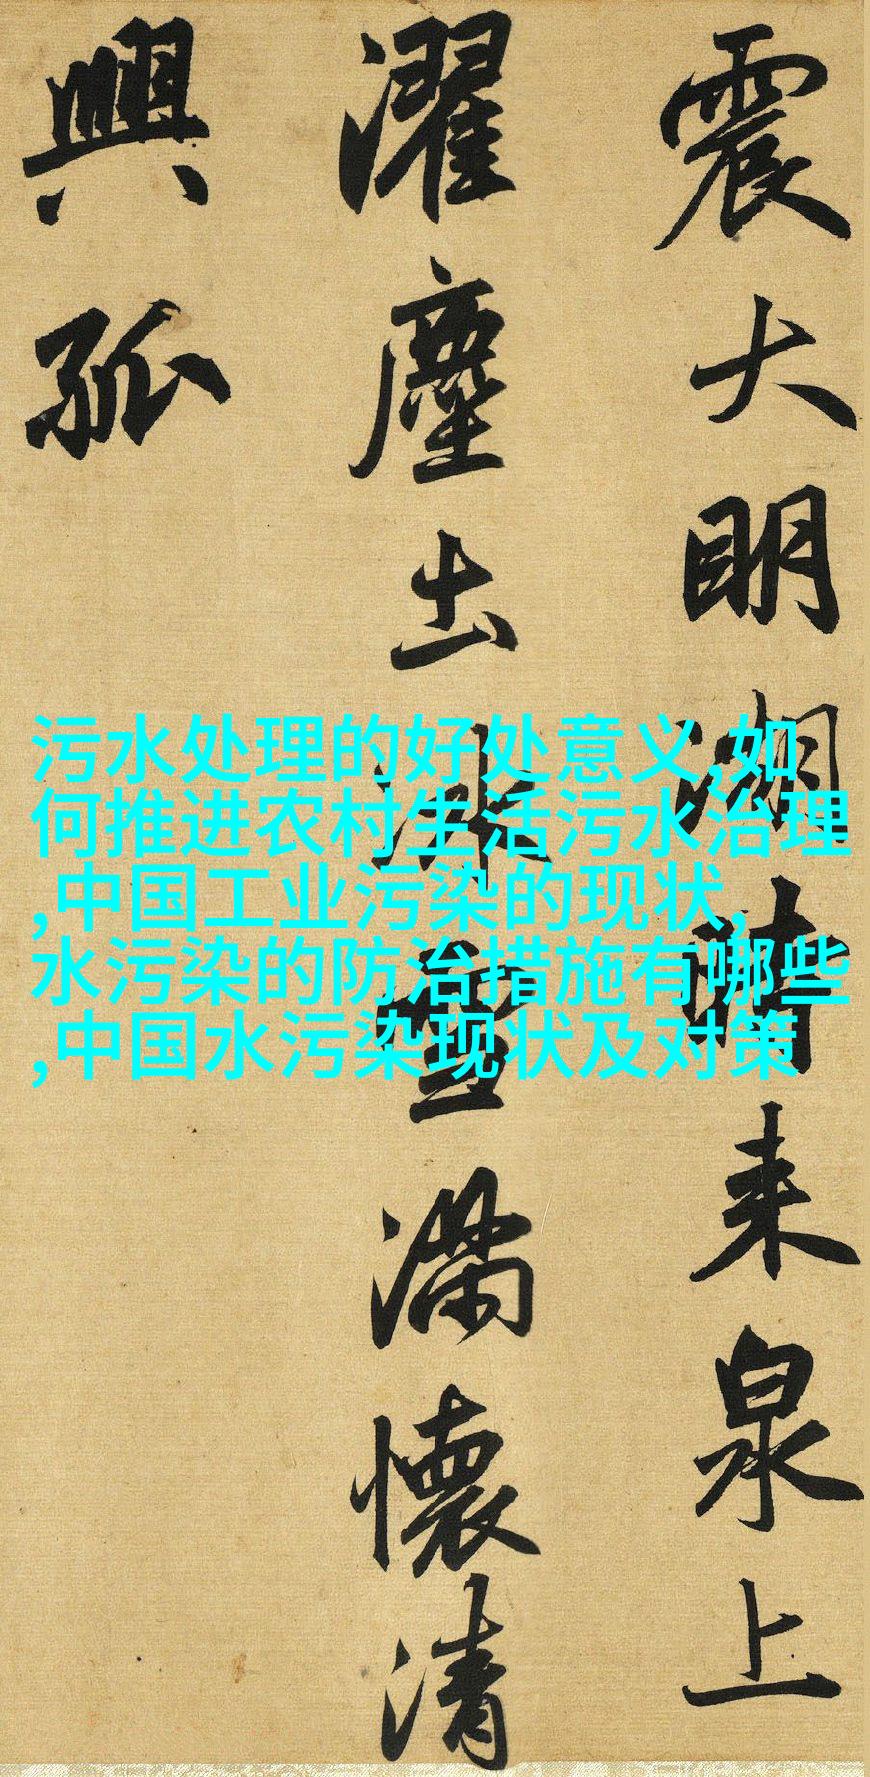 震大明湖時来泉上
濯塵土冰雪滿懷清
興孤
污水处理的好处意义,如
何推进农村生活污水治理
,中国工业污染的现状,
水污染的防治措施有哪些
,中国水污染现状及对策